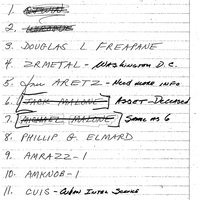 1.
2.
3. DOUGLAS L FREAPANE
4. ZRMETAL - WASHINGTON D.C.
5. Jan ARETZ - NEED MORE INFO
6. JACK MALONE ASSET - DECEASED
7. MICHAEL MALONE SAME AS 6
8. PHILLIP G. ELMARD
9. AMRAZZ-1
10. AMKNOB-1
11. CUIS - CUBAN INTEL SERVICE